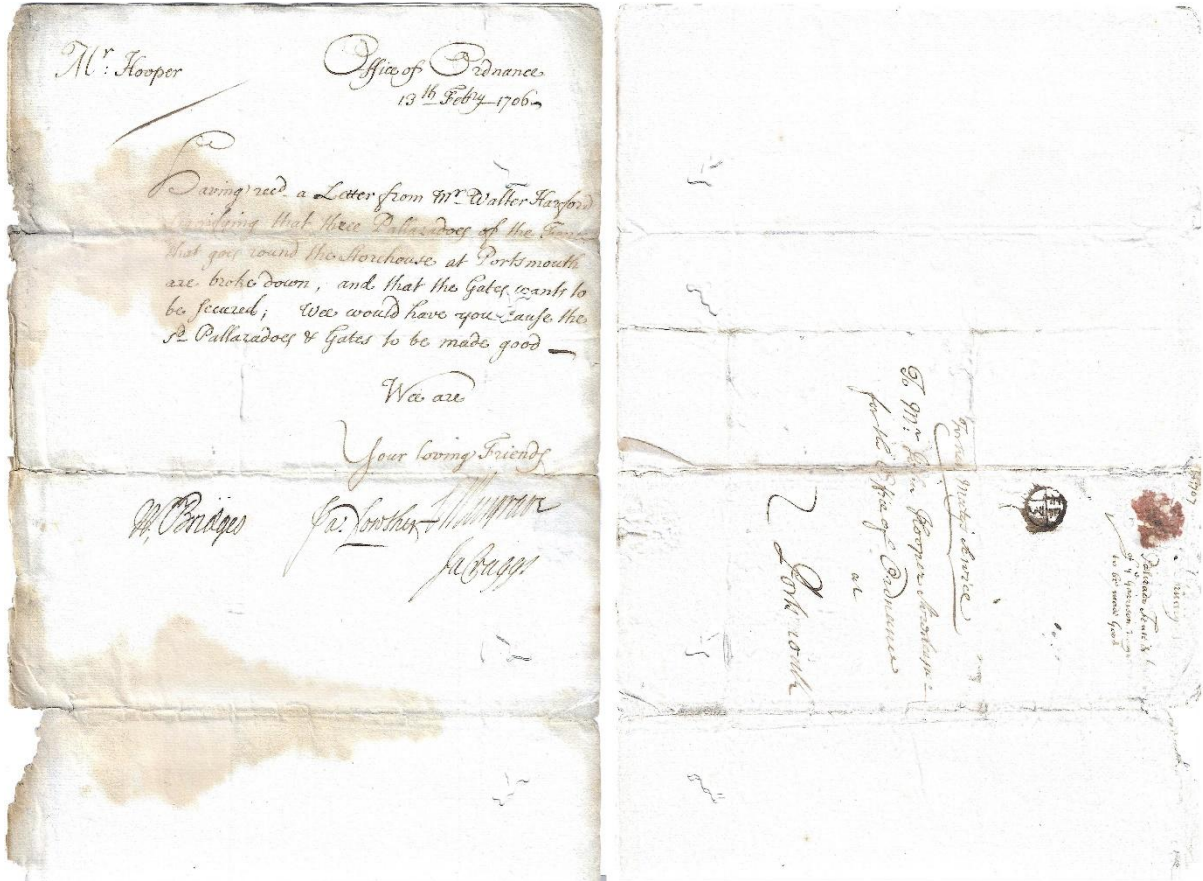 Mr: Hooper
Office of Ordnance
13th Febry 1706
Having recd. a Letter from Mr. Walter Harford
that three Pallazadoes of the
that goes round the Storehouse at Portsmouth
are broke down, and that the Gates wants to
be secured; Wee would have you Cause the
sd. Pallazadoes & Gates to be made good
Wee are
Your loving Friends
W. Bridges
Ja. Lowther
Ja Craggs
For her Service
To Mr. Hooper
for the Office of Ordnance
at
Portsmouth
to be made Good